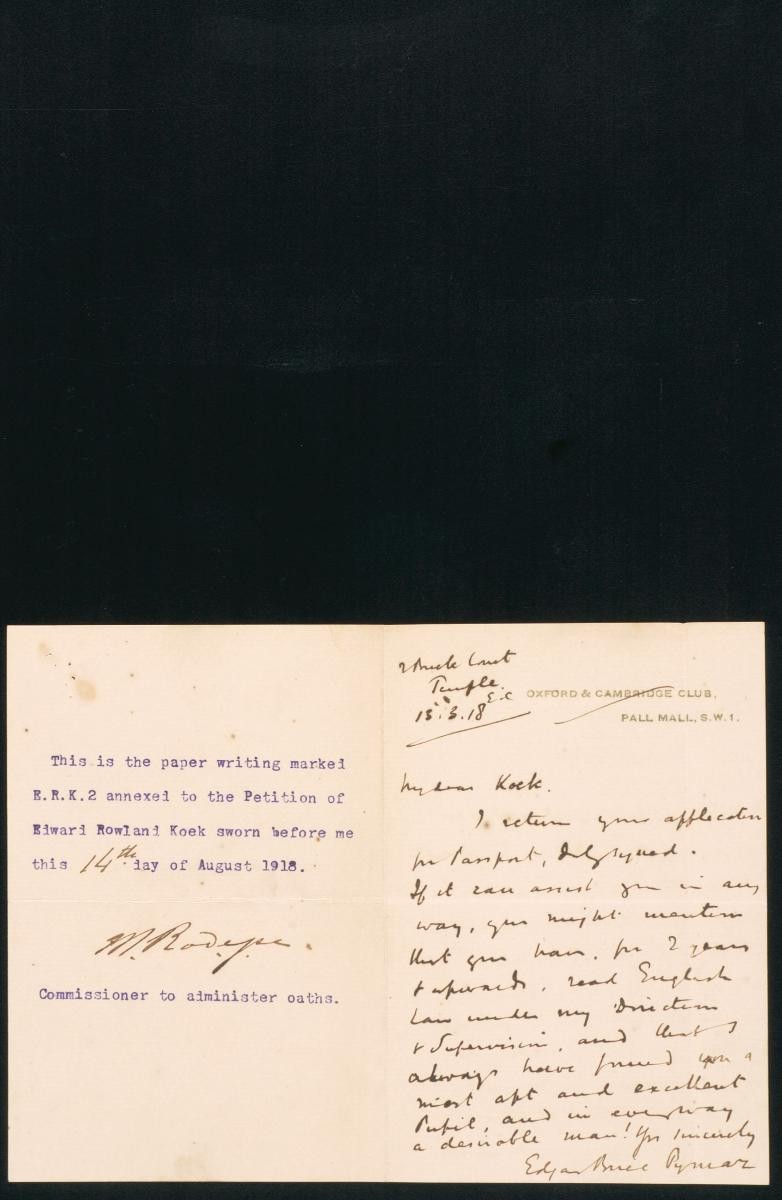 This is the paper writing marked
E.R.K.2 annexed to the Petition of
Edward Rowland Koek sworn before me
this 14th day of August 1918.
Commissioner to administer oaths.
2 Brick Court
Temple
E.C
13.3.18
OXFORD & CAMBRIDGE CLUB,
PALL MALL, S.W.1.
My dear Koek.
I return your application
for Passport, duly signed.
If it can assist you in any
way, you might mention
that you have, for 2 years
& upwards, read English
Law under my Direction
& Supervision, and that I
always have found you a
most apt and excellent
Pupil, and in every way
a desirable man! Yrs sincerely
Edgar